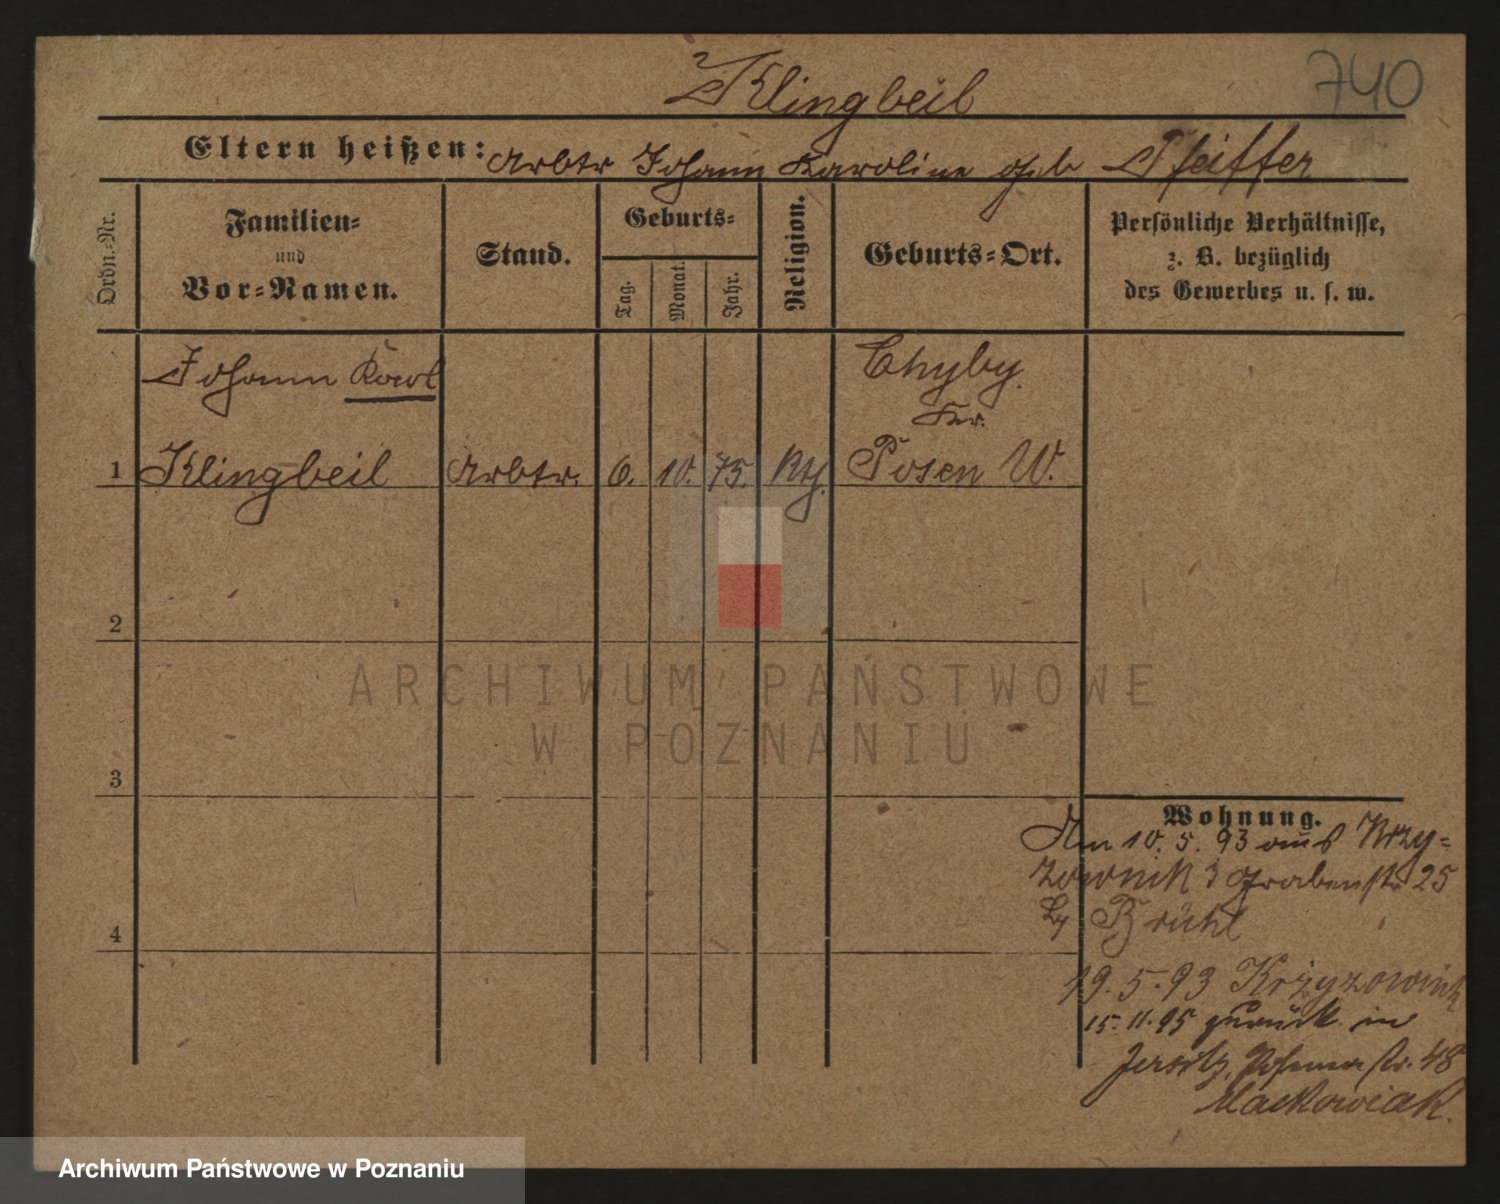 Klingbeil
740
Eltern heißen: Arbtr Johann Karoline geb Pfeiffer
Ordn.-Nr.
Familien-
und
Vor-Namen.
Stand.
Geburts-
Tag.
Monat.
Jahr.
Religion.
Geburts-Ort.
Persönliche Verhältnisse,
z. B. bezüglich
des Gewerbes u. s. w.
Johann Karl
Chyby.
Kr.
1 Klingbeil Arbtr. 6. 10. 75. Posen W.
2
3
4
ARCHIWUM PAŃSTWOWE
W POZNANIU
Wohnung.
Am 10. 5. 93 aus Krzy-
zownik Grabenstr 25
Brühl
19. 5. 93 Krzyzownik
15. 11. 95 zurück in
Jersitz, Posenerstr. 48
Mackowiak.
Archiwum Państwowe w Poznaniu